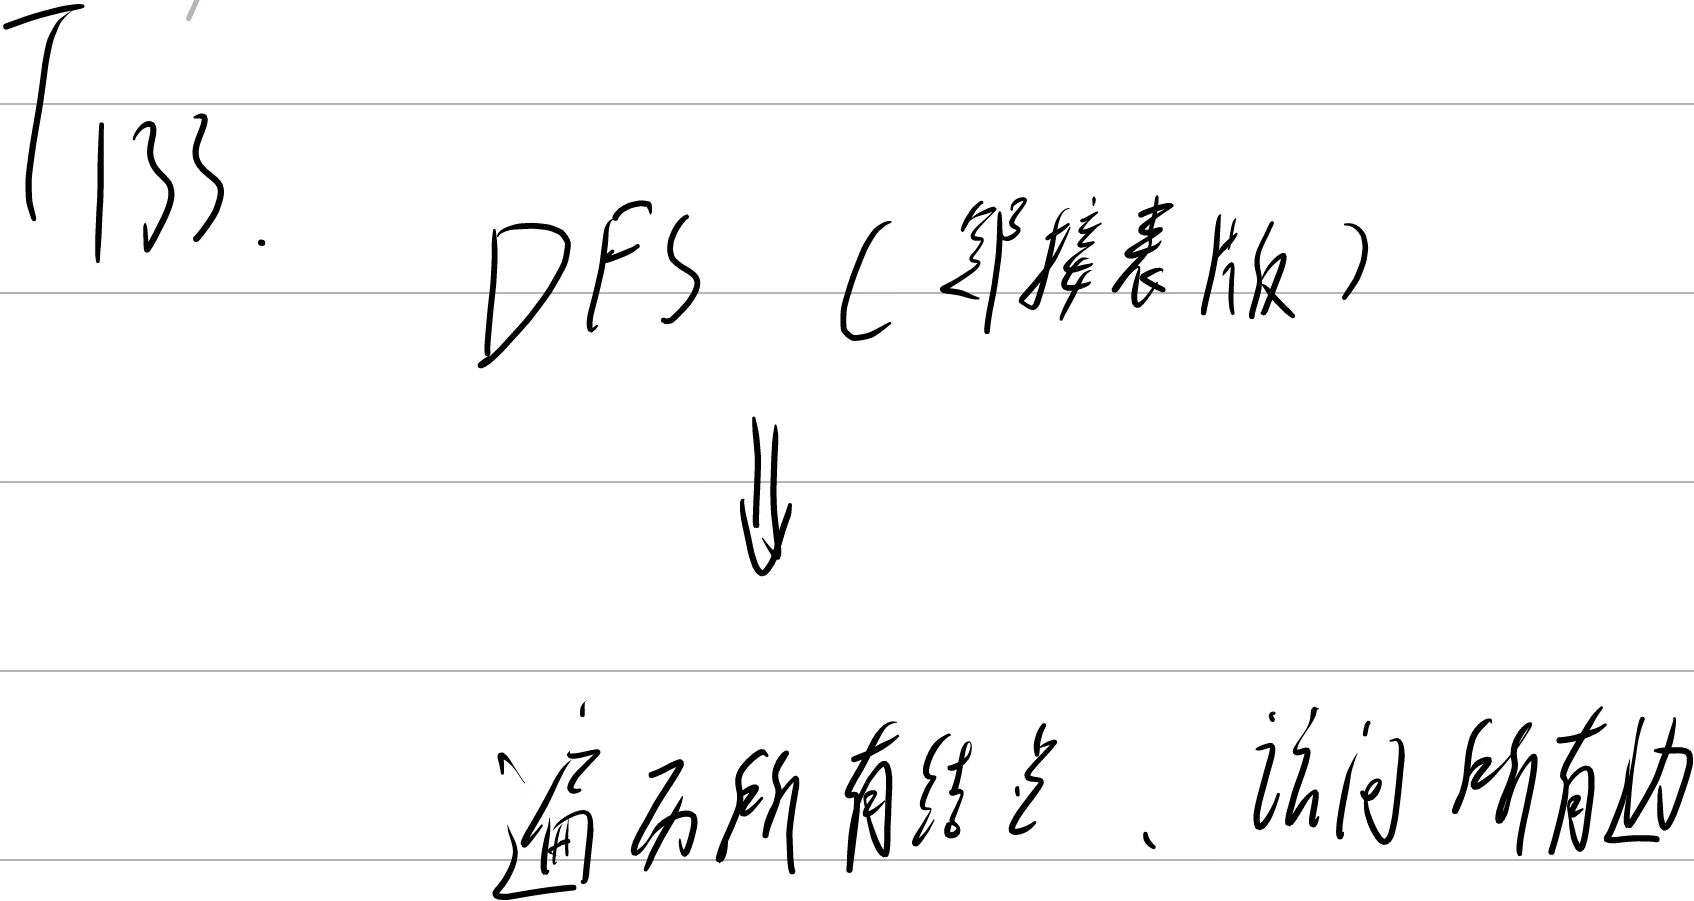 T133.
DFS (邻接表版)
⇓
遍历所有结点、访问所有边